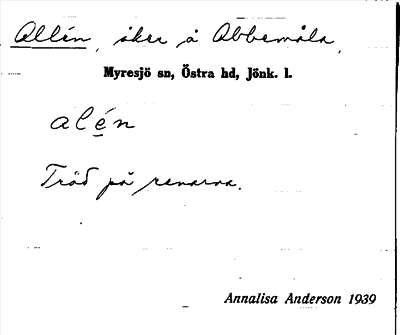 Allén, åker å Abbemåla,
Myresjö sn, Östra hd, Jönk. l.
alén
Träd på renarna.
Annalisa Anderson 1939